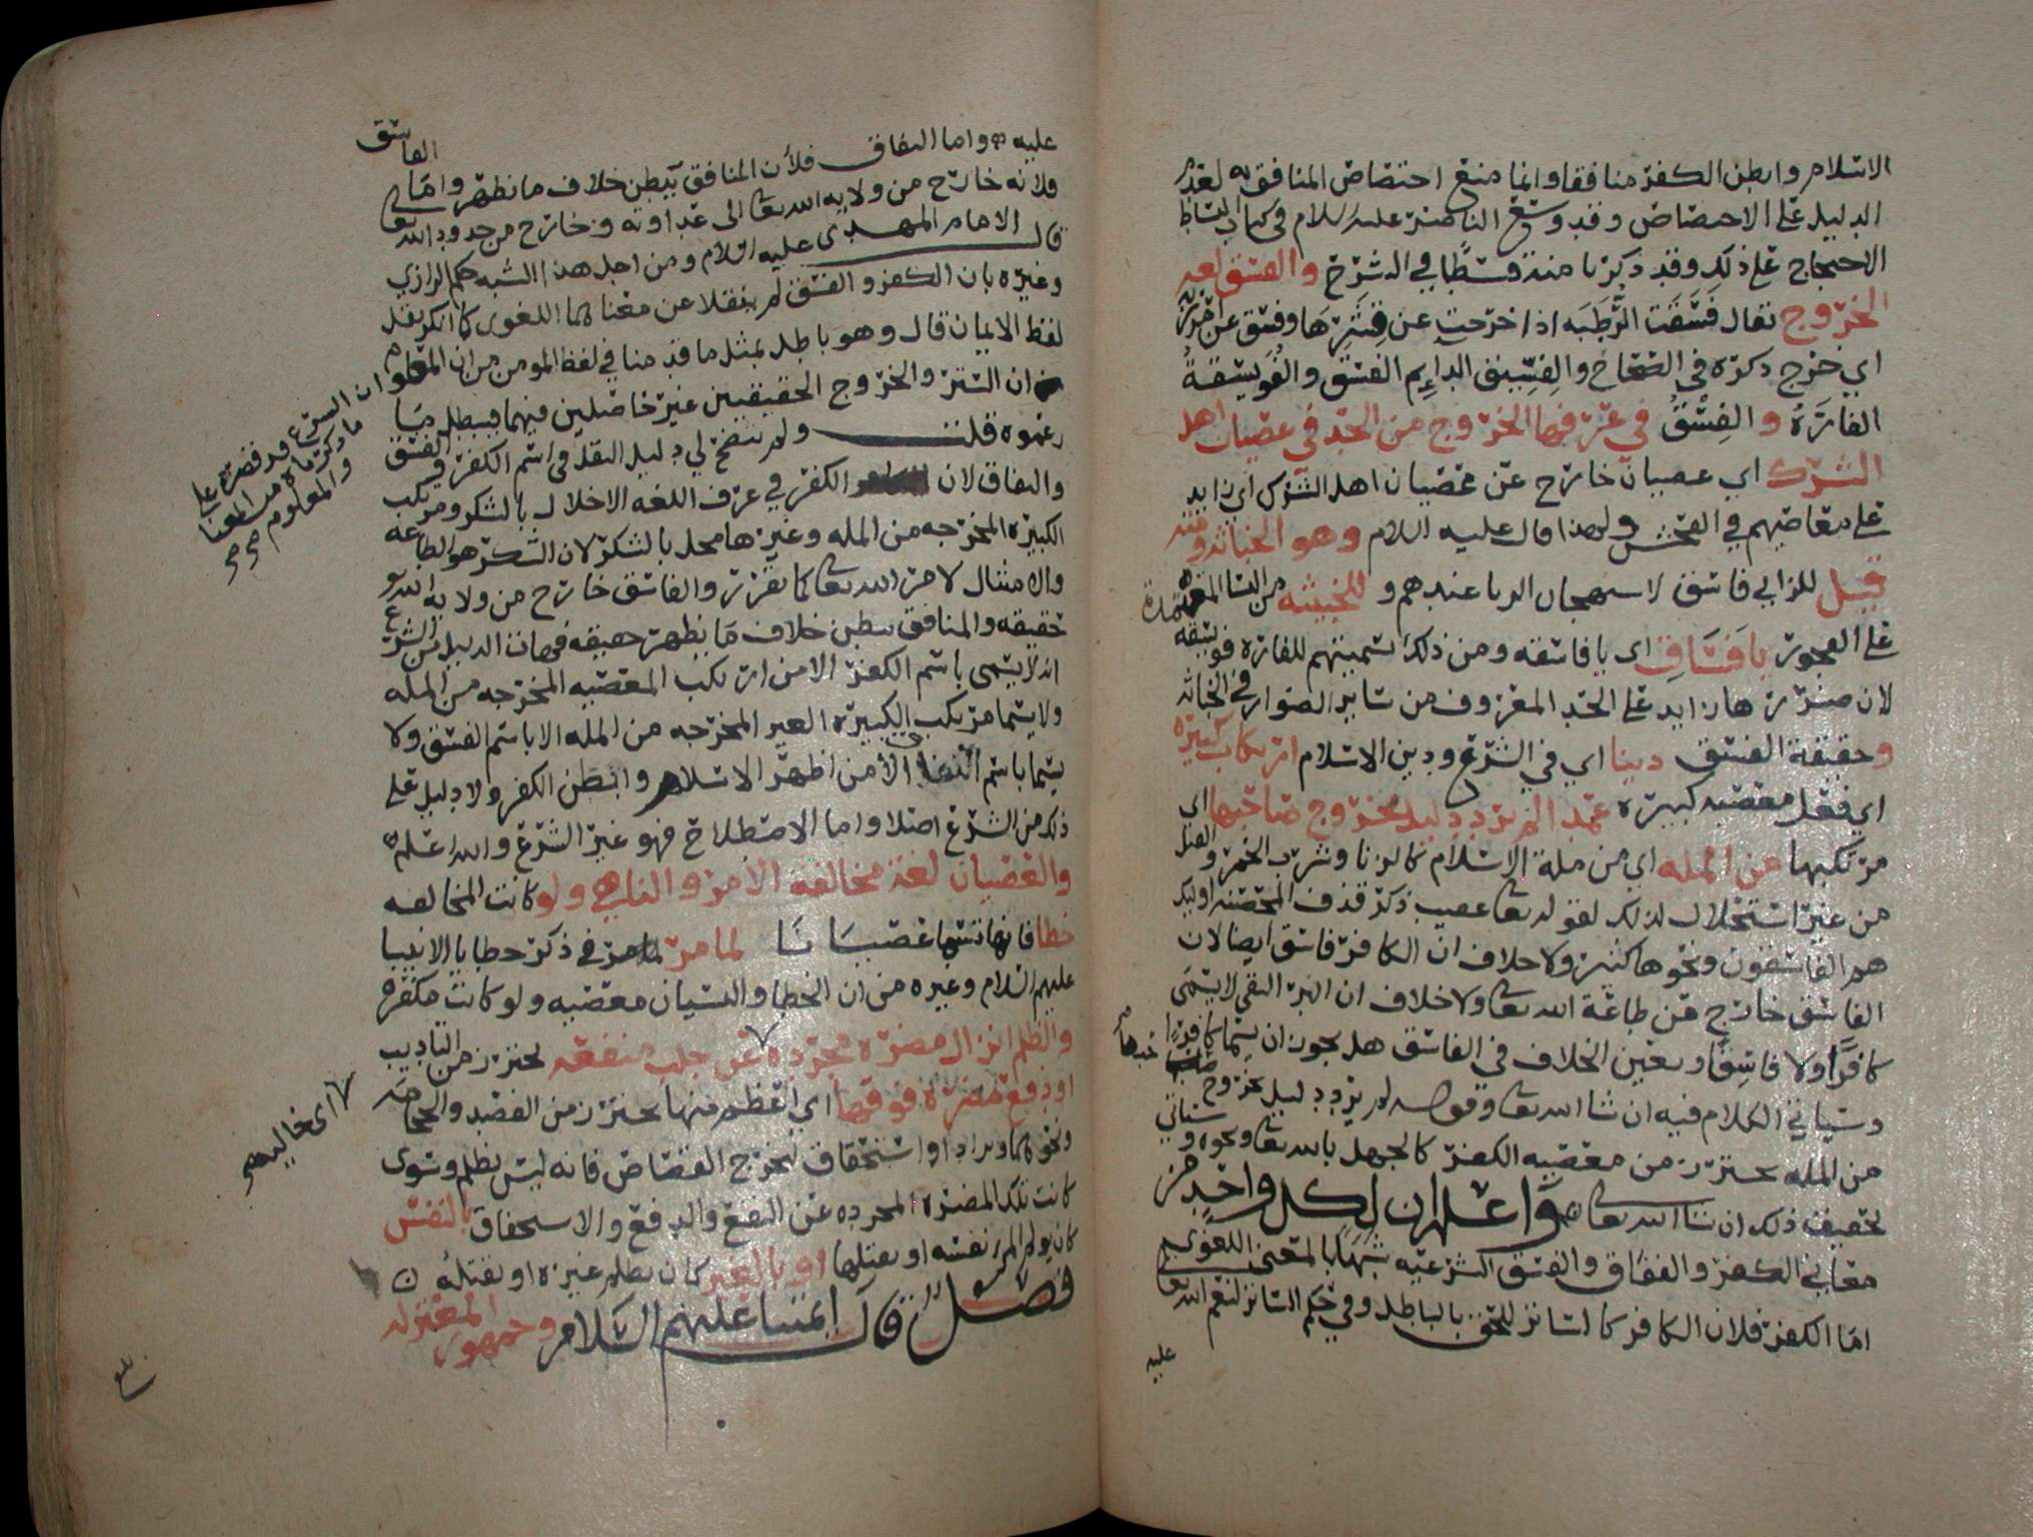 الاسلام وابطن الكفر منافقا وانما منع اختصاص المنافق به لعدم
الدليل على الاختصاص وقد وسع الناصر عليه السلام في كتاب البساط
الاحتجاج على ذلك وقد ذكرنا منه قسطا في الشرح والفسق لغة
الخروج يقال فسقت الرطبة اذا خرجت عن قشرها وفسق عن امر ربه
اي خرج ذكره في الصحاح والفسيق الدايم الفسق والفويسقة
الفارة والفسق في عرفها الخروج من الحد في عصيان اهل
الشرك اي عصيان خارج عن عصيان اهل الشرك اي زايد
على معاصيهم في الفحش ولهذا قال عليه السلام وهو الخباثة ومنه
قيل للزاني فاسق لاستهجان الزنا عندهم وللخبيثة من النسا المعتمدة
على الفجور يا فساق اي يا فاسقه ومن ذلك تسميتهم للفارة فويسقه
لان ضررها زايد على الحد المعروف من ساير الضوار في الخباثه
وحقيقة الفسق دينا اي في الشرع ودين الاسلام ارتكاب كبيرة
اي فعل معصيه كبيرة عمدا لم يرد دليل بخروج صاحبها اي
مرتكبها من المله اي من ملة الاسلام كالزنا وشرب الخمر والقتل
من غير استحلال لذلك لقوله تعا عقيب ذكر قذف المحصنه اوليك
هم الفاسقون ونحوها كثير ولا خلاف ان الكافر فاسق ايضا لان
الفاسق خارج عن طاعة الله تعا ولا خلاف ان البر التقي لا يسمى
كافرا ولا فاسقا وتعين الخلاف في الفاسق هل يجوز ان يسما كافرا
وسياتي الكلام فيه ان شا الله تعا وقوله لم يرد دليل بخروج صاحبها
من المله يحترز من معصيه الكفر كالجهل بالله تعا ونحوه وسياتي
تحقيق ذلك ان شا الله تعا واعلم ان لكل واحد من
معاني الكفر والنفاق والفسق الشرعيه شبها بالمعنى اللغوي
اما الكفر فلان الكافر كالساتر للحق بالباطل وفي حكم الساتر لنعم الله تعا
عليه
عليه واما النفاق فلأن المنافق يبطن خلاف ما يظهر واما الفاسق
فلانه خارج من ولايه الله تعا الى عداوته وخارج من حدود الله تعا
قال الامام المهدي عليه السلام ومن اجل هذا الشبه حكم الرازي
وغيره بان الكفر والفسق لم ينقلا عن معناهما اللغوي كما انكر نقل
لفظ الايمان قال وهو باطل بمثل ما قدمنا في لفظ المومن من ان المعلوم
ان الستر والخروج الحقيقيين غير حاصلين فيهما فيبطل ما
زعموه قلت ولم يتضح لي دليل النقل في اسم الكفر والفسق
والنفاق لان الكفر في عرف اللغه الاخلال بالشكر ومرتكب
الكبيرة المخرجه من المله وغيرها مخل بالشكر لان الشكر هو الطاعه
والامتثال لامر الله تعا كما تقرر والفاسق خارج من ولايه الله تعا
حقيقه والمنافق يبطن خلاف ما يظهر حقيقه فهات الدليل من الشرع
انه لا يسمى باسم الكفر الا من ارتكب المعصيه المخرجه من المله
ولا يسما مرتكب الكبيرة الغير المخرجه من المله الا باسم الفسق ولا
يسما باسم النفاق الا من اظهر الاسلام وابطن الكفر ولا دليل على
ذلك من الشرع اصلا واما الاصطلاح فهو غير الشرع والله اعلم
والعصيان لغة مخالفه الامر والناهي ولو كانت المخالفه
خطا فانها تسما عصيانا لما مر في ذكر خطايا الانبيا
عليهم السلام وغيره من ان الخطا والنسيان معصيه ولو كانت مكفره
والظلم انزال مضرة مجرده عن جلب منفعه يحترز من التاديب
او دفع مضرة فوقها اي اعظم منها يحترز من الفصد والحجامه
ونحوهما ويراد او استحقاق ليخرج القصاص فانه ليس بظلم وسوى
كانت تلك المضرة المجرده عن النفع والدفع والاستحقاق بالنفس
كان يولم المر نفسه او يقتلها او بالغير كان يظلم غيره او يقتله
فصل قال ايمتنا عليهم السلام وجمهور المعتزله
ان الشرع قد قصره على
ما ذكرناه من المعنا
والمعلوم
اي خاليه